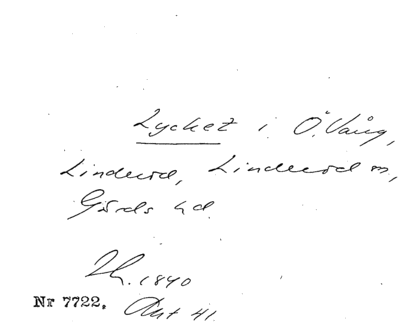 Lycket i Ö. Vång,
Linderöd, Linderöd sn,
Gärds hd.
1840
Nr 7722. Akt 41.